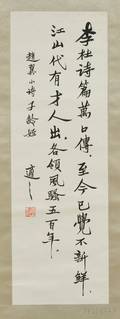 李杜诗篇萬口傳，至今已覺不新鮮。
江山代有才人出，各領風騷五百年。
趙翼小诗 子齡姪
適之